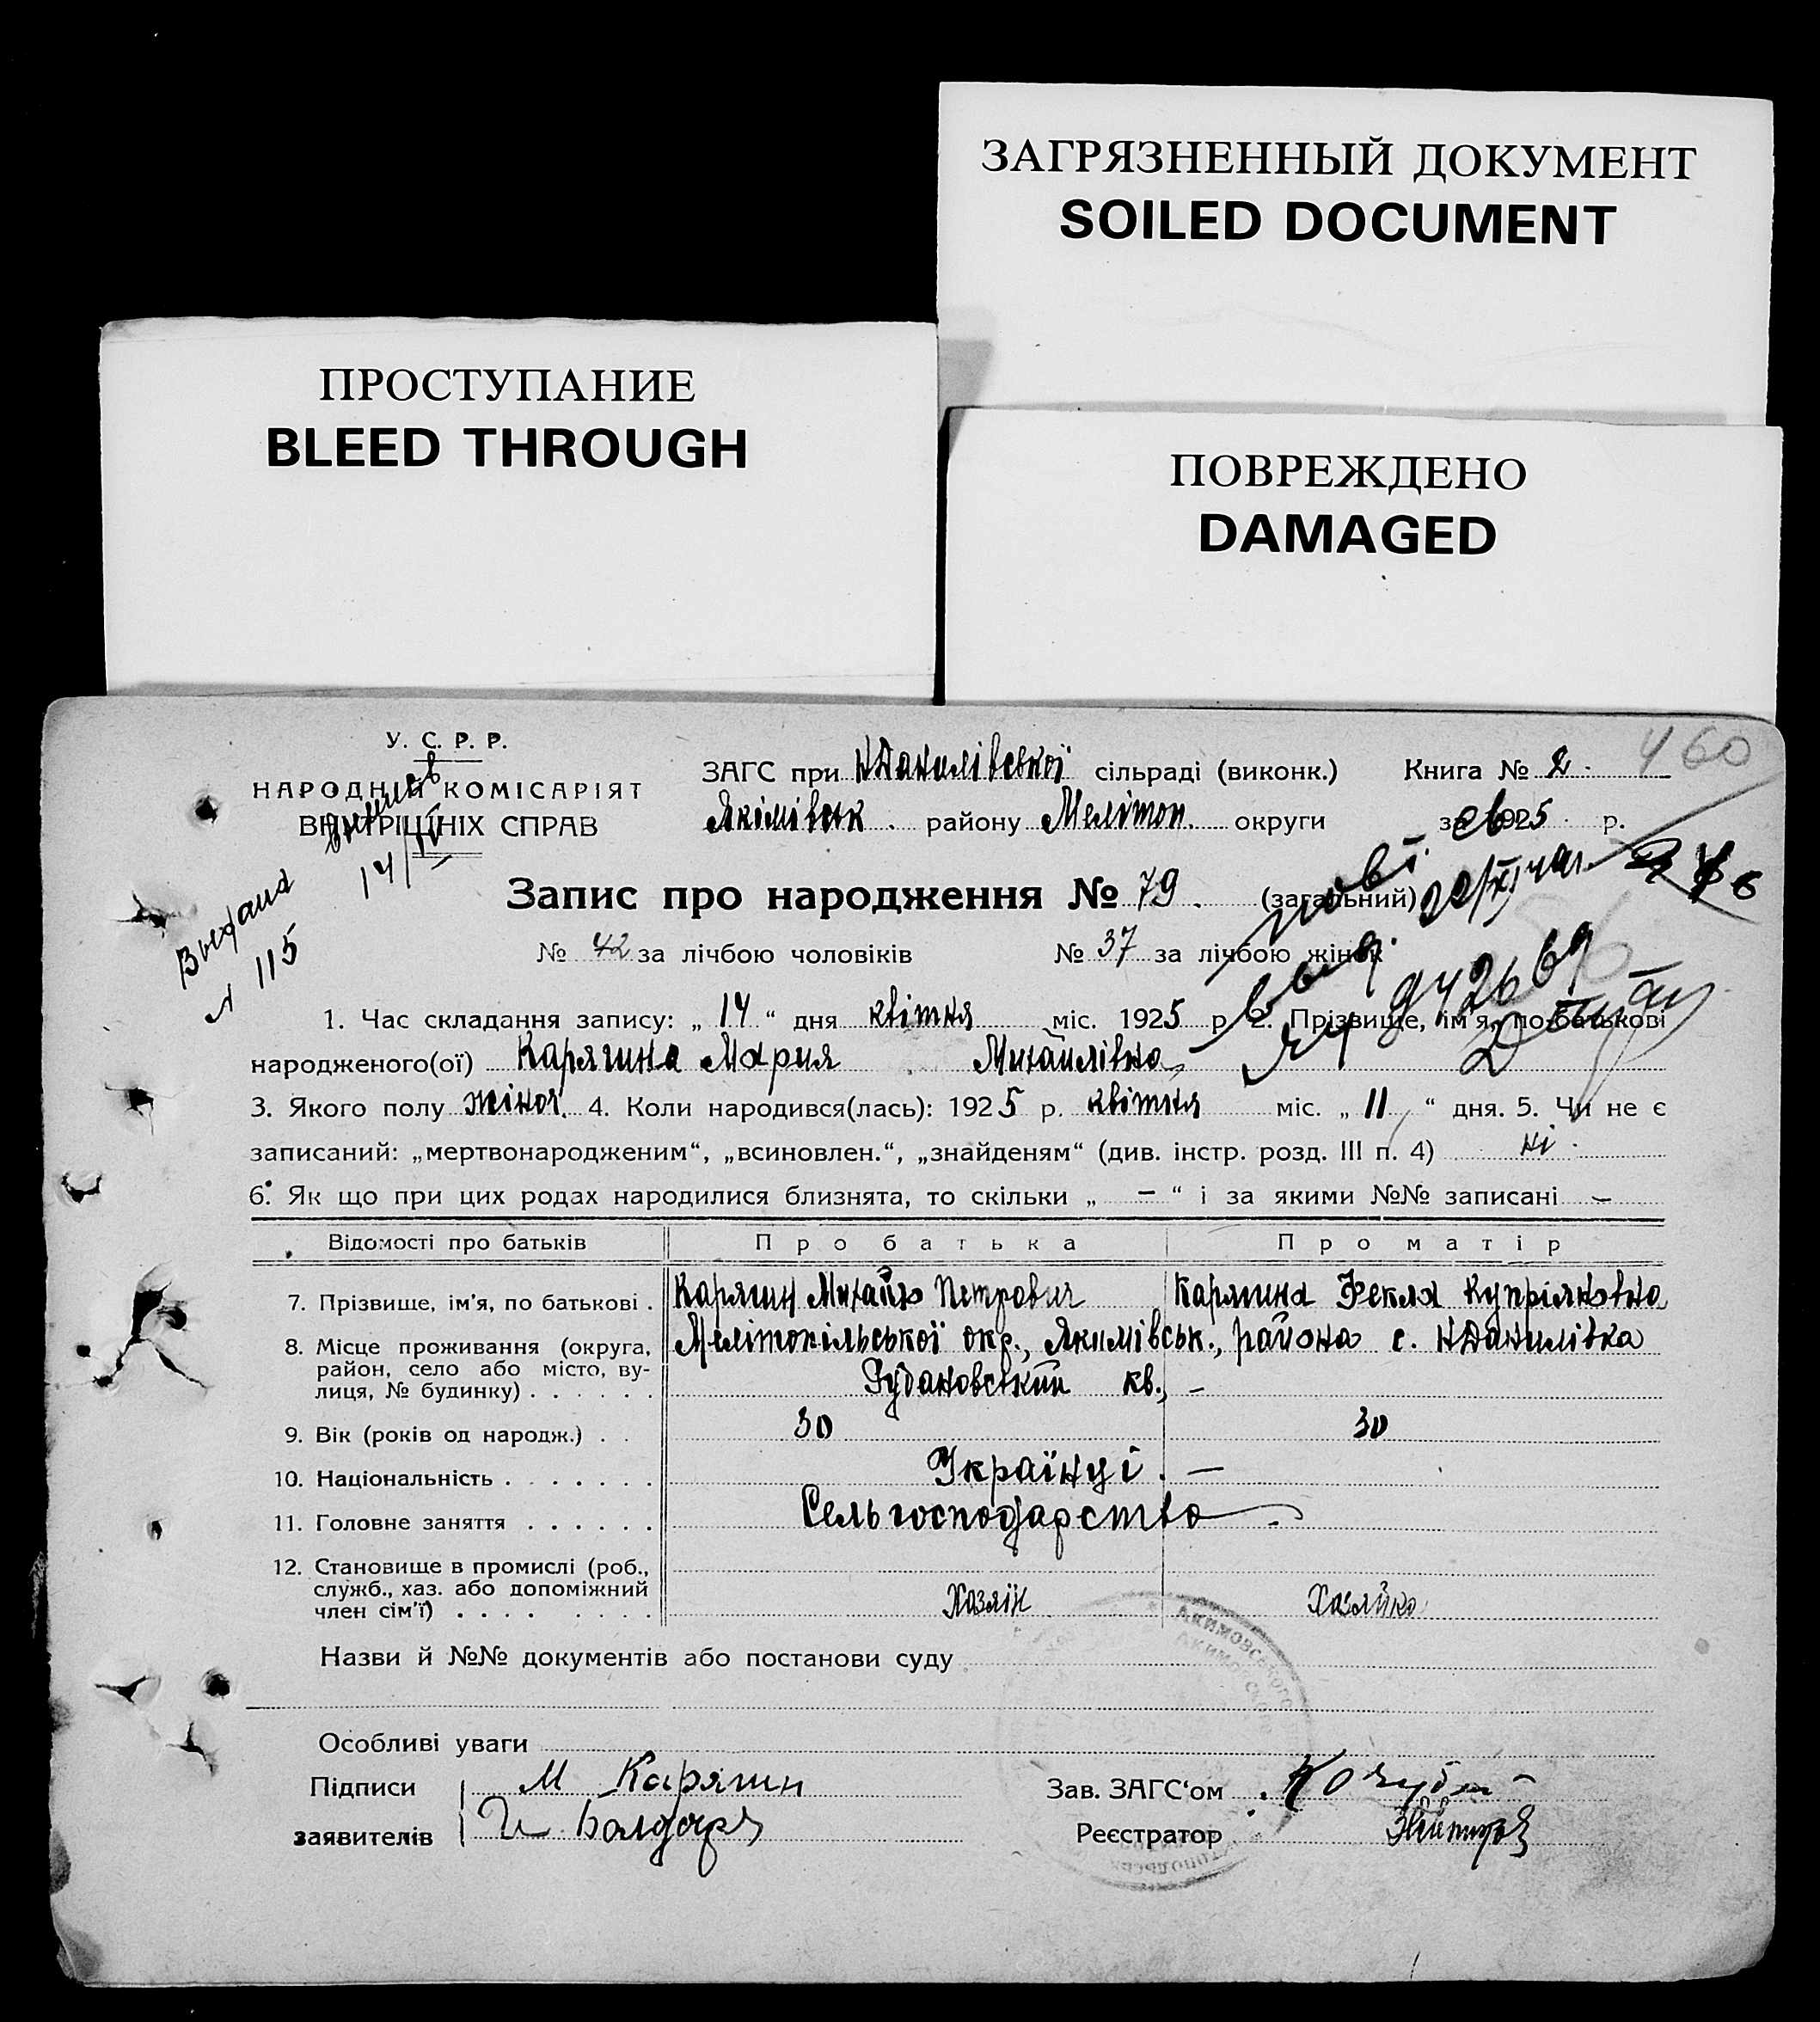 ЗАГРЯЗНЕННЫЙ ДОКУМЕНТ
SOILED DOCUMENT
ПРОСТУПАНИЕ
BLEED THROUGH
ПОВРЕЖДЕНО
DAMAGED
460
У. С. Р. Р.
НАРОДНИЙ КОМІСАРІЯТ
ВНУТРІШНІХ СПРАВ
14/IV
115
ЗАГС при НДанилівської сільраді (виконк.) Книга № 2
Якімівськ. району Мелітоп. округи за 1925 р.
Запис про народження № 79. (загальний)
№ 42 за лічбою чоловіків № 37 за лічбою жінок
942669
1. Час складання запису: „ 14 “ дня квітня міс. 1925 р. 2. Прізвище, ім'я, по-батькові
народженого(ої) Карягина Мария Михайлівна
3. Якого полу жіноч. 4. Коли народився(лась): 1925 р. квітня міс. „ 11 “ дня. 5. Чи не є
записаний: „мертвонародженим“, „всиновлен.“, „знайденям“ (див. інстр. розд. III п. 4) ні.
6. Як що при цих родах народилися близнята, то скільки „ — “ і за якими №№ записані —
Відомості про батьків Про батька Про матір
7. Прізвище, ім'я, по батькові . Карягин Михайло Петрович Карягина Фекла Купріяновна
8. Місце проживання (округа, район, село або місто, вулиця, № будинку) . . . . . . Мелітопільської окр., Якимівськ., района с. НДанилівка
кв., —
9. Вік (років од народж.) . . 30 30
10. Національність . . . . . . . Українці. —
11. Головне заняття . . . . . . Сельгосподарство
12. Становище в промислі (роб., служб., хаз. або допоміжний член сім'ї) . . . . . . . . Хазяїн Хазяйка
Назви й №№ документів або постанови суду
Особливі уваги
Підписи М Карягин Зав. ЗАГС'ом Кочубей
заявителів Реєстратор